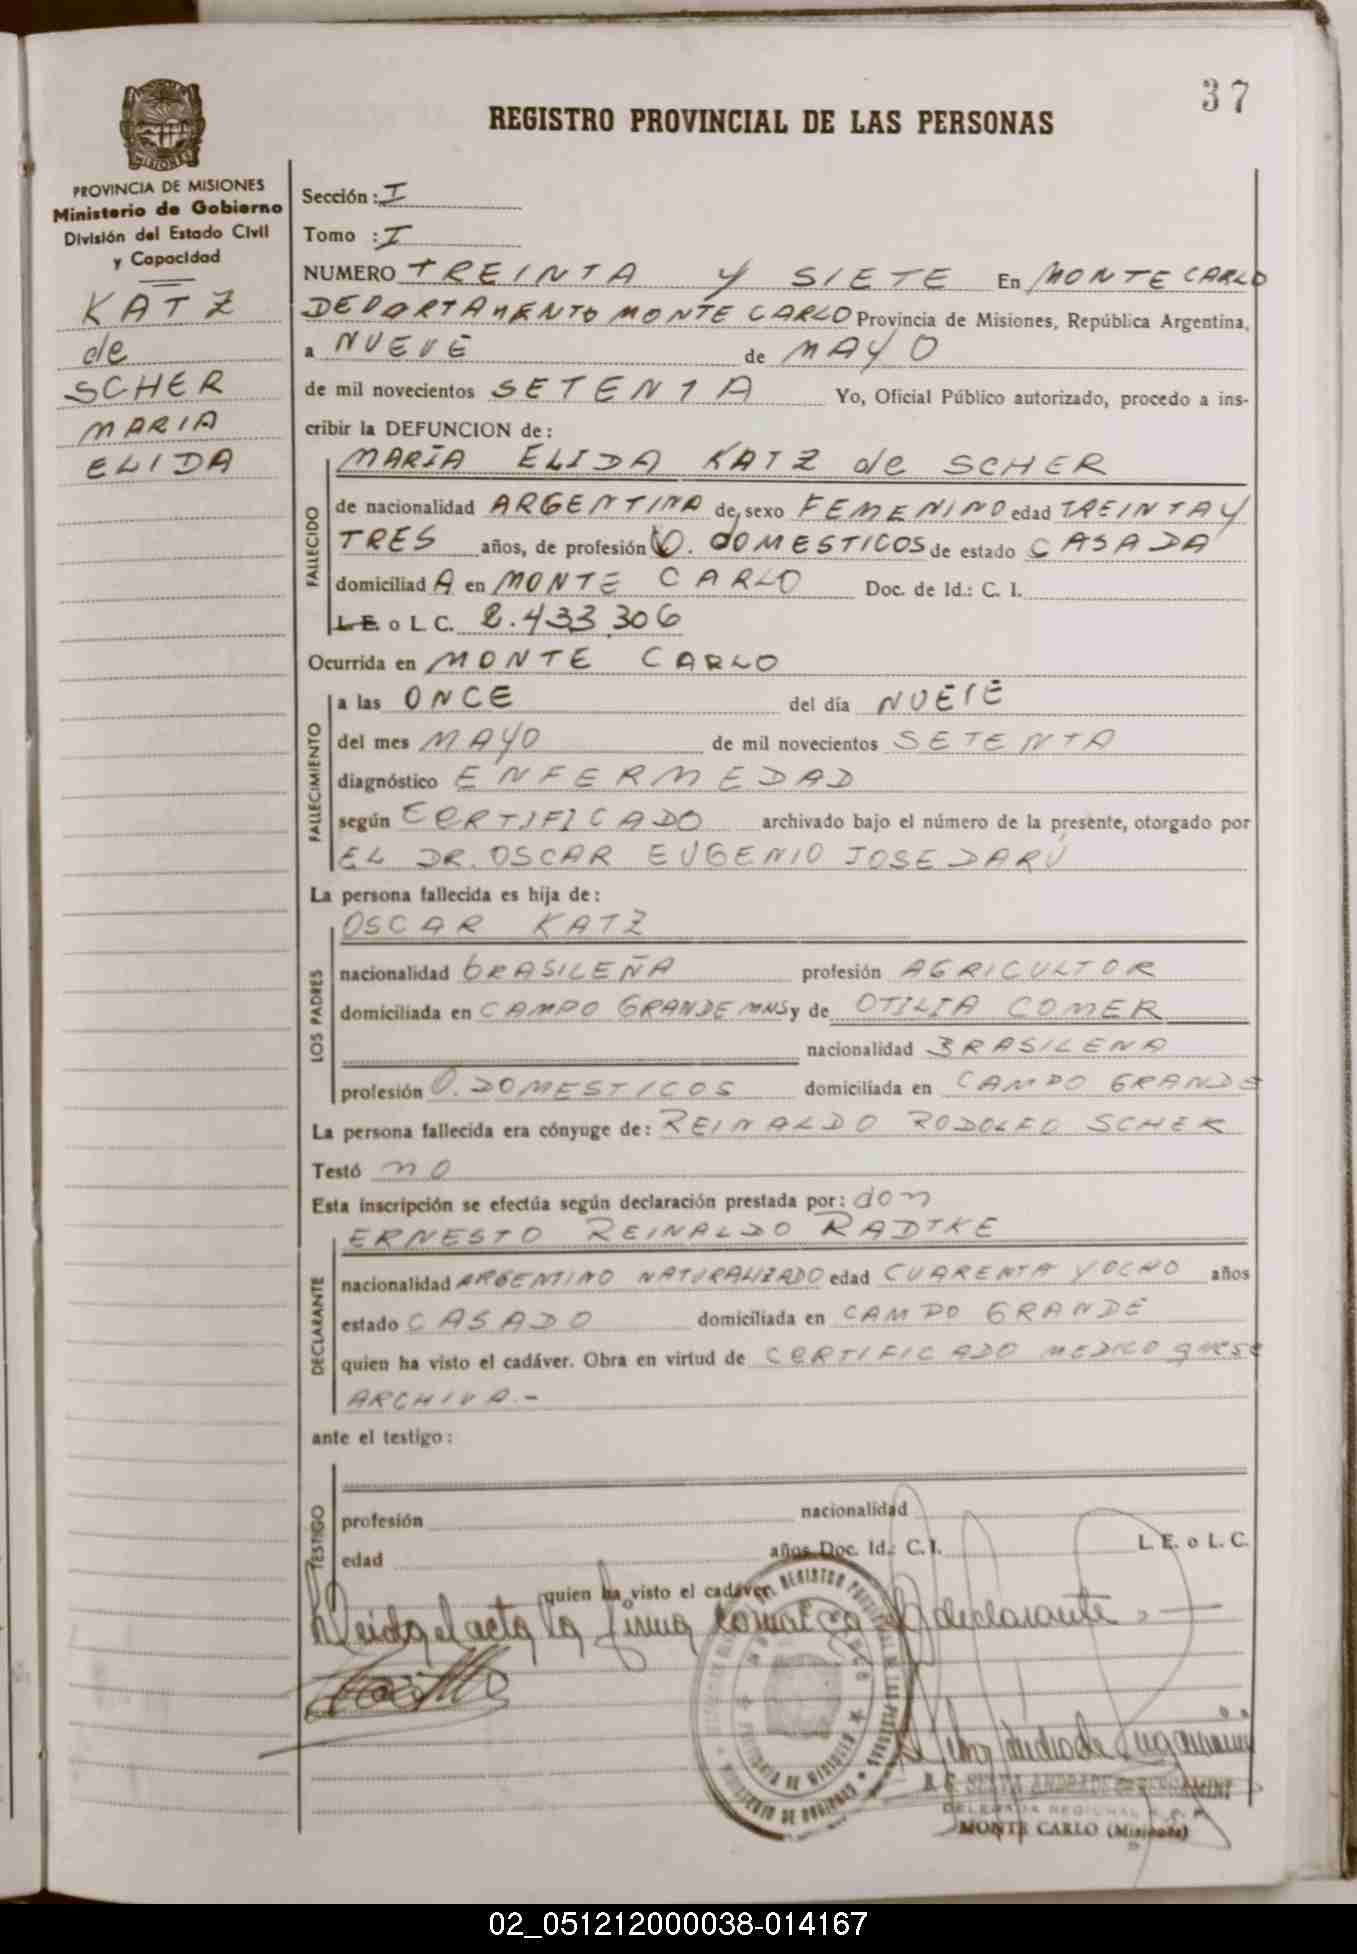 37
REGISTRO PROVINCIAL DE LAS PERSONAS
MISIONES
PROVINCIA DE MISIONES
Ministerio de Gobierno
División del Estado Civil
y Capacidad
KATZ
de
SCHER
MARIA
ELIDA
Sección: I
Tomo : I
NUMERO TREINTA Y SIETE En MONTE CARLO
DEPARTAMENTO MONTE CARLO Provincia de Misiones, República Argentina,
a NUEVE de MAYO
de mil novecientos SETENTA Yo, Oficial Público autorizado, procedo a ins-
cribir la DEFUNCION de:
MARÍA ELIDA KATZ de SCHER
FALLECIDO
de nacionalidad ARGENTINA de sexo FEMENINO edad TREINTA Y
TRES años, de profesión Q. DOMESTICOS de estado CASADA
domiciliad A en MONTE CARLO Doc. de Id.: C. I.
L. E. o L C. 2.433.306
Ocurrida en MONTE CARLO
FALLECIMIENTO
a las ONCE del día NUEVE
del mes MAYO de mil novecientos SETENTA
diagnóstico ENFERMEDAD
según CERTIFICADO archivado bajo el número de la presente, otorgado por
EL DR. OSCAR EUGENIO JOSE DARÚ
La persona fallecida es hija de:
OSCAR KATZ
LOS PADRES
nacionalidad BRASILEÑA profesión AGRICULTOR
domiciliada en CAMPO GRANDE MNS y de OTILIA COMER
nacionalidad BRASILENA
profesión Q. DOMESTICOS domiciliada en CAMPO GRANDE
La persona fallecida era cónyuge de: REINALDO RODOLFO SCHER
Testó NO
Esta inscripción se efectúa según declaración prestada por: don
ERNESTO REINALDO RADTKE
DECLARANTE
nacionalidad ARGENTINO NATURALIZADO edad CUARENTA Y OCHO años
estado CASADO domiciliada en CAMPO GRANDE
quien ha visto el cadáver. Obra en virtud de CERTIFICADO MEDICO que se
ARCHIVA.-
ante el testigo:
TESTIGO
profesión nacionalidad
edad años Doc. Id.: C. I. L. E. o L. C.
quien ha visto el cadáver.
Leida el acta la firma el declarante
PROVINCIA DE MISIONES
MINISTERIO DE GOBIERNO
DELEGADA REGIONAL
MONTE CARLO (Misiones)
02_051212000038-014167